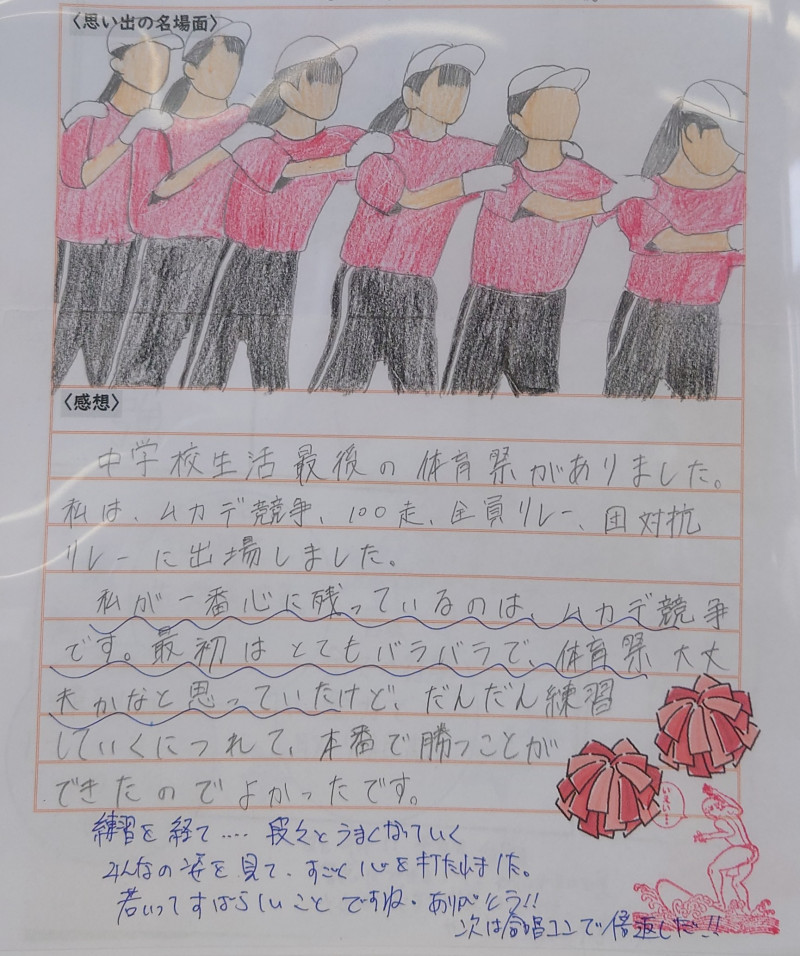 〈思い出の名場面〉
〈感想〉
中学校生活最後の体育祭がありました。
私は、ムカデ競争、100走、全員リレー、団対抗
リレーに出場しました。
私が一番心に残っているのは、ムカデ競争
です。最初はとてもバラバラで、体育祭大丈
夫かなと思っていたけど、だんだん練習
していくにつれて、本番で勝つことが
できたのでよかったです。
練習を経て‥‥段々とうまくなっていく
みんなの姿を見て、すごく心を打たれました。
若いってすばらしいことですね。ありがとう!!
次は合唱コンで倍返しだ!!